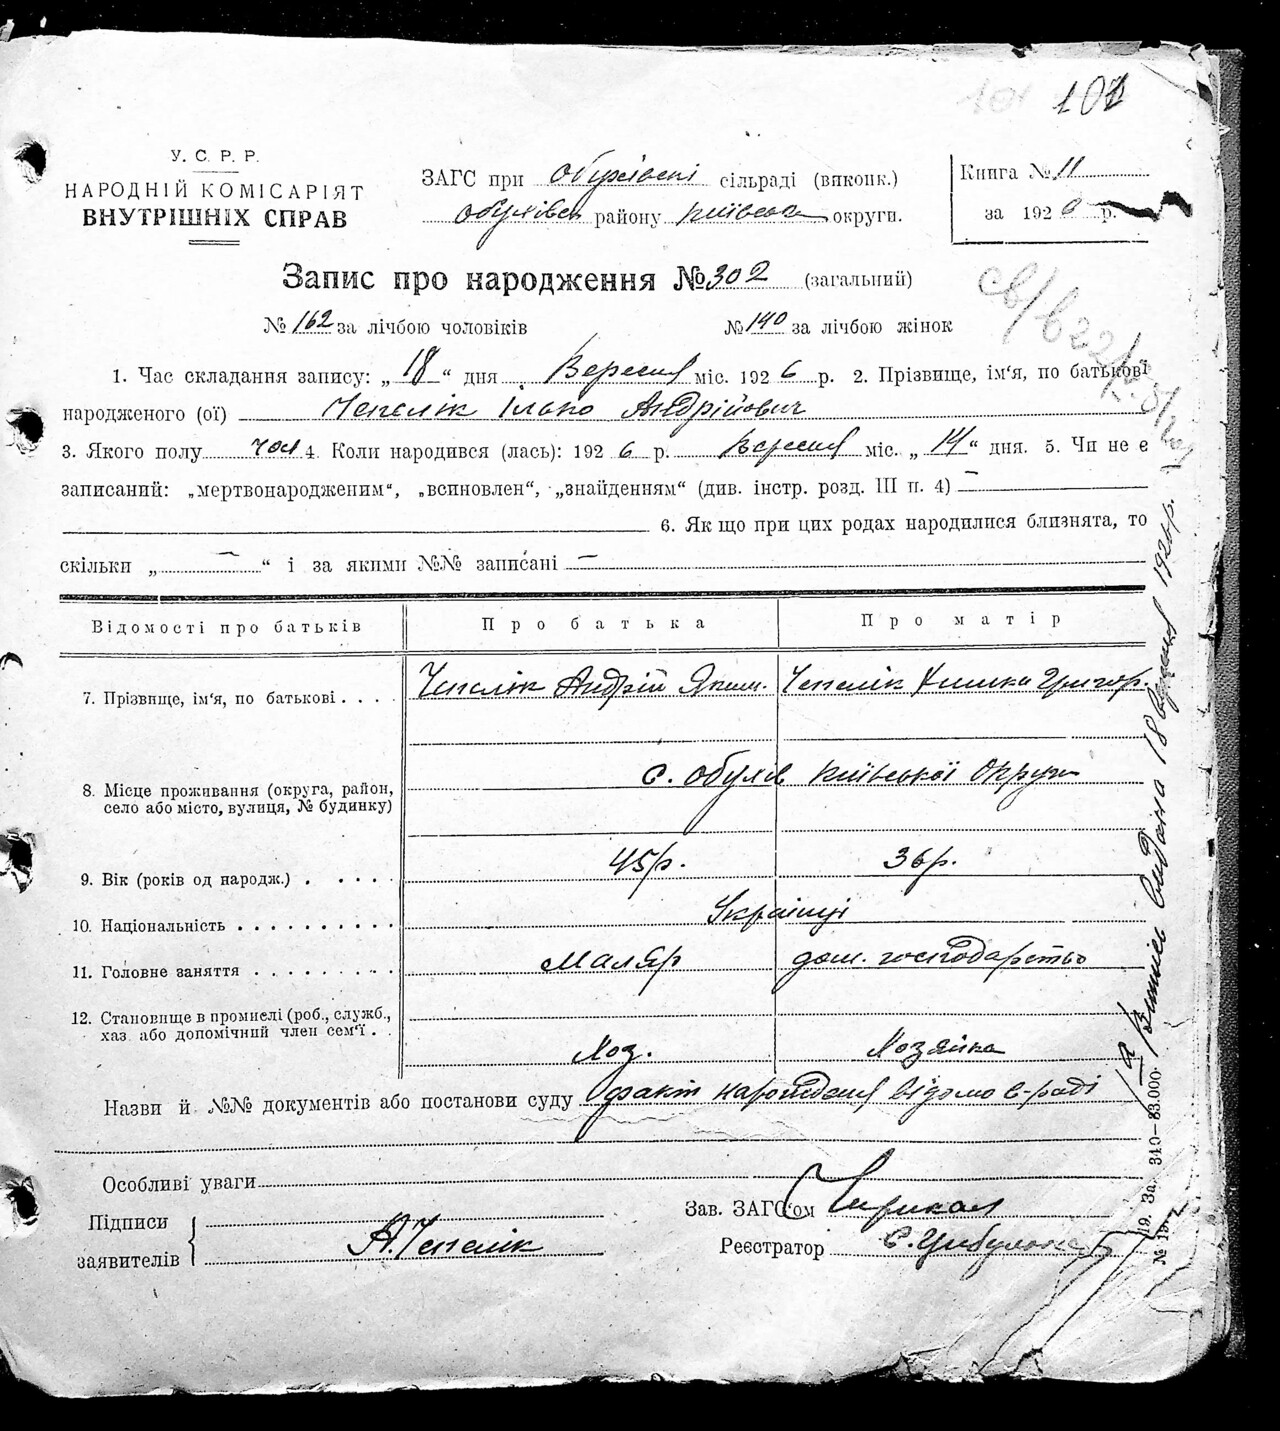 101
У. С. Р. Р.
НАРОДНІЙ КОМІСАРІЯТ
ВНУТРІШНІХ СПРАВ
ЗАГС при Обухівські сільраді (виконк.)
Обухівськ району Київська округи.
Книга № 11
за 1926 р.
Запис про народження № 302 (загальний)
№ 162 за лічбою чоловіків № 140 за лічбою жінок
1. Час складання запису: „ 18 “ дня Вересня міс. 1926 р. 2. Прізвище, ім'я, по батькові
народженого (ої) Чепелік Ілько Андрійович
3. Якого полу чол 4. Коли народився (лась): 1926 р. Вересня міс. „ 14 “ дня. 5. Чи не є
записаний: „мертвонародженим“, „всиновлен“, „знайденням“ (див. інстр. розд. III п. 4) —
6. Як що при цих родах народилися близнята, то
скільки „ — “ і за якими №№ записані —
Відомості про батьків Про батька Про матір
7. Прізвище, ім'я, по батькові . . . . Чепелік Андрій Яким. Чепелік Григор.
8. Місце проживання (округа, район,
село або місто, вулиця, № будинку) с. Обухів Київської Округи
9. Вік (років од народж.) . . . . . 45 р. 36 р.
10. Національність . . . . . . . . . . Українці
11. Головне заняття . . . . . . . . . Маляр дом. господарство
12. Становище в промислі (роб., служб.,
хаз або допомічний член сем'ї . . Хоз. Хозяйка
Назви й №№ документів або постанови суду факт народження відомо с-раді
Особливі уваги
Підписи
заявителів А. Чепелік
Зав. ЗАГС'ом
Реєстратор С. Цибулько
Випись видана 18 вересня 1926 р.
19. За. 340—83.000.